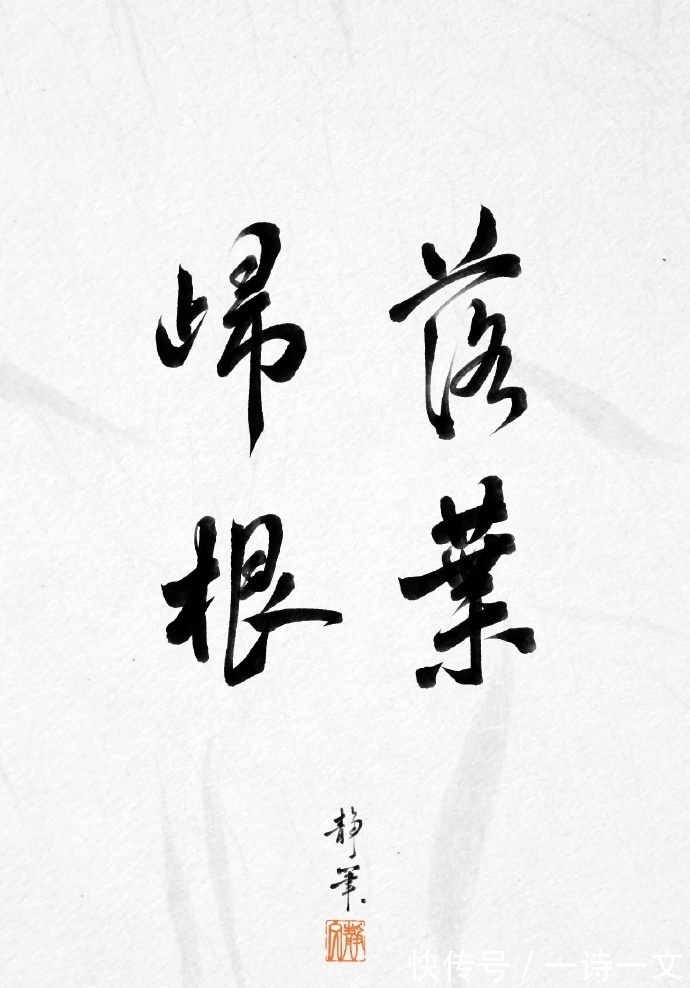 落葉
歸根
靜筆
快传号 / 一诗一文